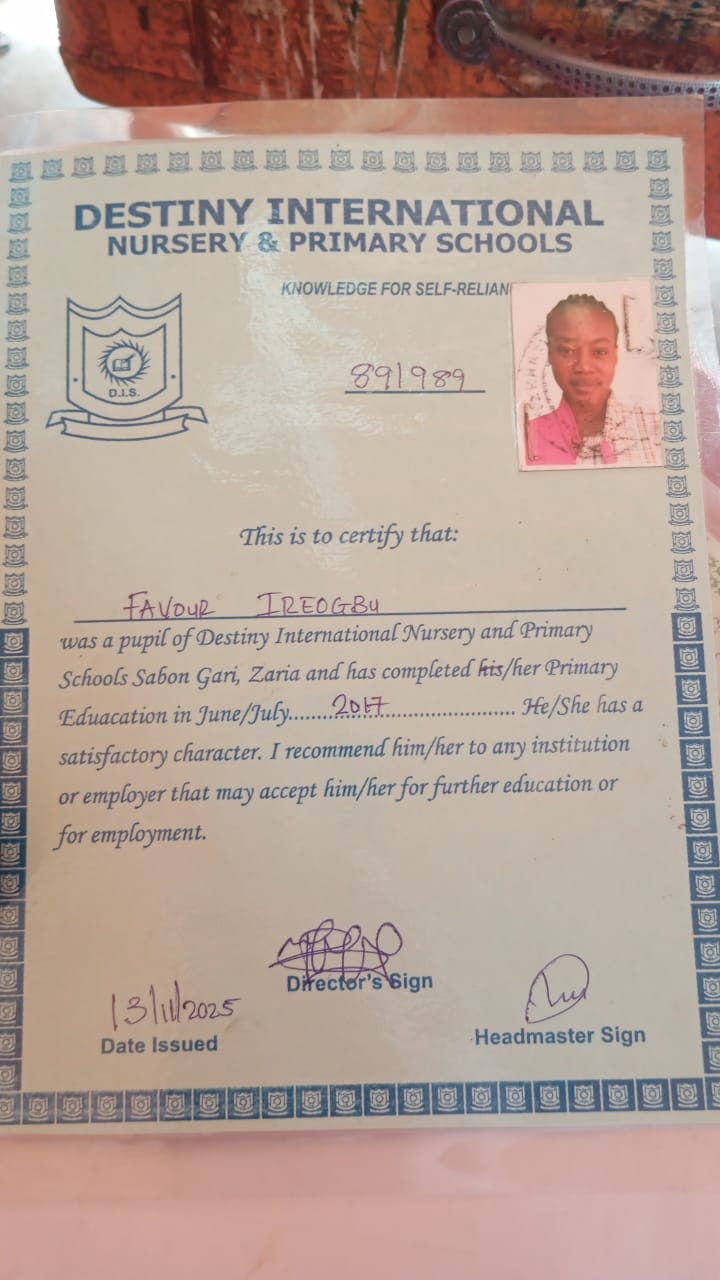 DESTINY INTERNATIONAL
NURSERY & PRIMARY SCHOOLS
KNOWLEDGE FOR SELF-RELIAN
D.I.S.
891989
This is to certify that:
FAVOUR IREOGBU
was a pupil of Destiny International Nursery and Primary
Schools Sabon Gari, Zaria and has completed his/her Primary
Eduacation in June/July......2017...... He/She has a
satisfactory character. I recommend him/her to any institution
or employer that may accept him/her for further education or
for employment.
Director's Sign
13/11/2025
Date Issued
Headmaster Sign